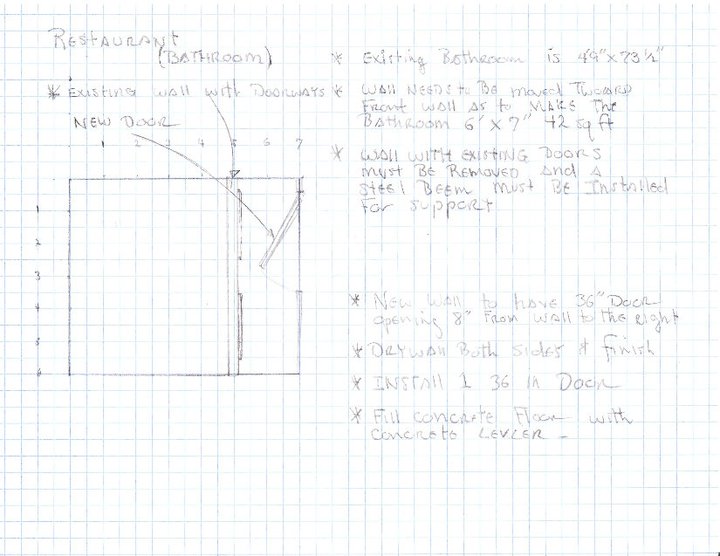 RESTAURANT
(BATHROOM)
* EXISTING WALL with DOORWAYS
NEW DOOR
1 2 3 4 5 6 7
1
2
3
4
5
6
* Existing Bathroom is 49"x73½"
* WALL NEEDS to BE moved TWOARD
FRONT WALL AS to MAKE THE
BATHROOM 6' X 7" 42 sq ft
* WALL WITH EXISTING DOORS
MUST BE REMOVED AND A
STEEL BEEM MUST BE INSTALLED
FOR SUPPORT
* NEW WALL to HAVE 36" DOOR
opening 8" FROM WALL to THE RIGHT
* DRYWALL BOTH SIDES & finish
* INSTALL 1 36 IN DOOR
* FILL CONCRETE FLOOR with
CONCRETE LEVLER -